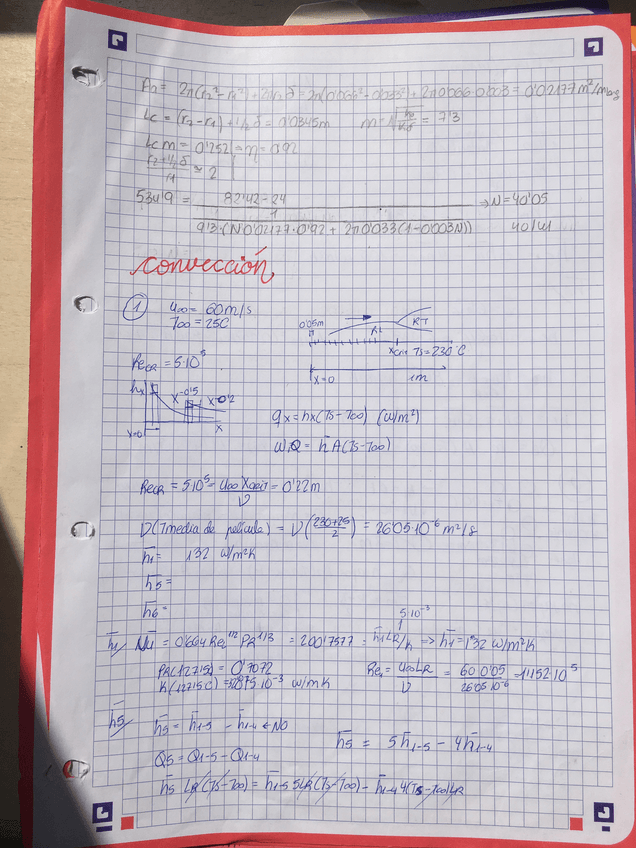 A2= 2π(r2²-r1²)+2πr2δ = 2π(0'066²-0'033²)+2π0'066·0'003 = 0'02177 m²/
Lc = (r2-r1)+1/2δ = 0'0345m m = = 7'3
Lc m = 0'252 = η = 0'92
r2+1/2δ / r1 = 2
534'9 = 82'42-24 / 1 / 9'3·(N0'02177·0'92 + 2π0'033(1-0'003N)) → N=40'05
40/41
Convección
1 u∞ = 60m/s
T∞ = 25C
0'05m RL RT
Xcrit Ts=230°C
ReCR = 5·10⁵
X=0 1m
hx X^-0'5 X^-0'2
X=0 X
qx = hx(Ts-T∞) (W/m²)
W Q = h̄ A(Ts-T∞)
ReCR = 5·10⁵ = u∞ Xcrit / ν = 0'22m
ν(Tmedia de película) = ν(230+25 / 2) = 26'05·10⁻⁶ m²/s
h̄1 = 132 W/m²K
h̄5 =
h̄6 =
5·10⁻³
h̄1/ Nu1 = 0'664 Re1^1/2 PR^1/3 = 200'7577 = h̄1 LR/k => h̄1 = 132 W/m²K
PR(127'5C) = 0'7072
K(127'5C) = 10⁻³ W/mK
Re1 = u∞LR / ν = 60 0'05 / 26'05 10⁻⁶ = 1'152·10⁵
h̄5/ h̄5 = h̄1-5 - h̄1-4 ← NO
h̄5 = 5h̄1-5 - 4h̄1-4
Q5 = Q1-5 - Q1-4
h̄5 LR(Ts-T∞) = h̄1-5 5LR(Ts-T∞) - h̄1-4 4(Ts-T∞)LR